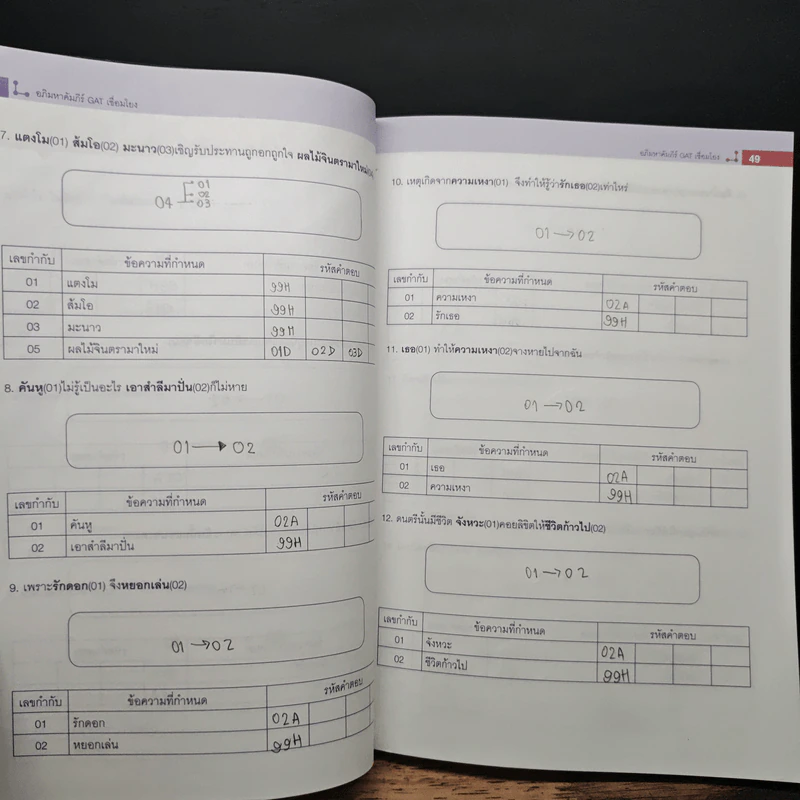 อภิมหาคัมภีร์ GAT เชื่อมโยง
7. แตงโม(01) ส้มโอ(02) มะนาว(03)เชิญรับประทานถูกอกถูกใจ ผลไม้จินตรามาใหม่
04 01
02
03
เลขกำกับ ข้อความที่กำหนด รหัสคำตอบ
01 แตงโม 99H
02 ส้มโอ 99H
03 มะนาว 99H
05 ผลไม้จินตรามาใหม่ 01D 02D 03D
8. คันหู(01)ไม่รู้เป็นอะไร เอาสำลีมาปั่น(02)ก็ไม่หาย
01 → 02
เลขกำกับ ข้อความที่กำหนด รหัสคำตอบ
01 คันหู 02A
02 เอาสำลีมาปั่น 99H
9. เพราะรักดอก(01) จึงหยอกเล่น(02)
01 → 02
เลขกำกับ ข้อความที่กำหนด รหัสคำตอบ
01 รักดอก 02A
02 หยอกเล่น 99H
อภิมหาคัมภีร์ GAT เชื่อมโยง 49
10. เหตุเกิดจากความเหงา(01) จึงทำให้รู้ว่ารักเธอ(02)เท่าไหร่
01 → 02
เลขกำกับ ข้อความที่กำหนด รหัสคำตอบ
01 ความเหงา 02A
02 รักเธอ 99H
11. เธอ(01) ทำให้ความเหงา(02)จางหายไปจากฉัน
01 → 02
เลขกำกับ ข้อความที่กำหนด รหัสคำตอบ
01 เธอ 02A
02 ความเหงา 99H
12. ดนตรีนั้นมีชีวิต จังหวะ(01)คอยลิขิตให้ชีวิตก้าวไป(02)
01 → 02
เลขกำกับ ข้อความที่กำหนด รหัสคำตอบ
01 จังหวะ 02A
02 ชีวิตก้าวไป 99H